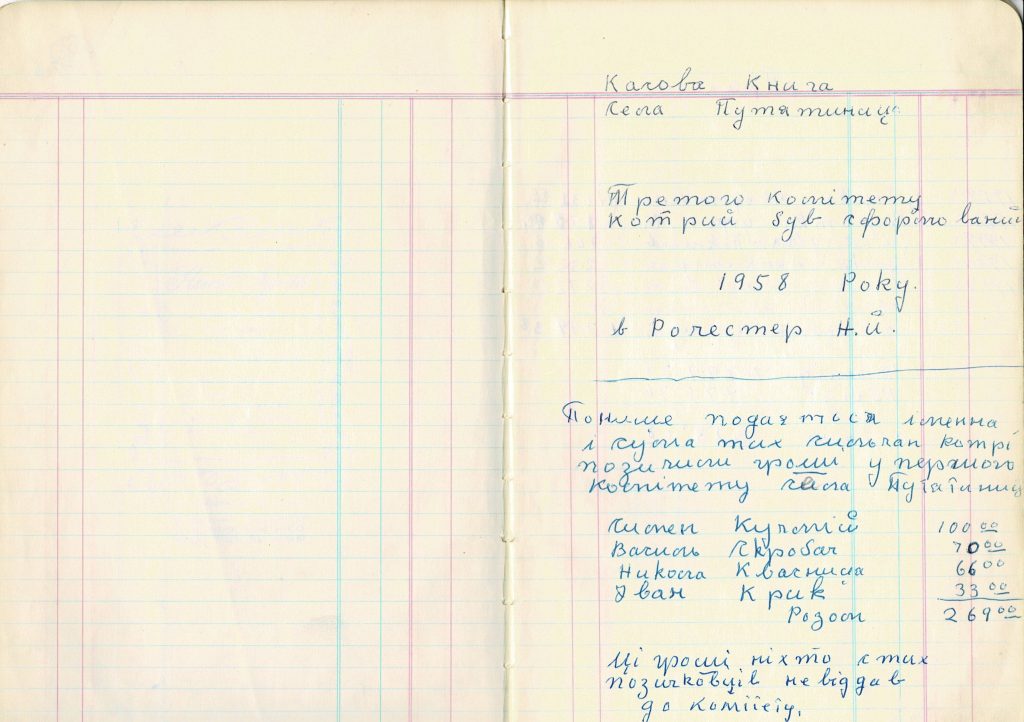 Касова Книга
Села Путятинці
Третого Комітету
Котрий був сформований
1958 Року.
в Рочестер Н.Й.
Понизше подається іменна
і сума тих сільчан котрі
позичили гроші у першого
Комітету села Путятинці
Симен Кучмій 100 00
Василь Скробач 70 00
Никола Квасниця 66 00
Іван Крик 33 00
Розом 269 00
Ці гроші ніхто с тих
позичковців не віддав
до комітету.